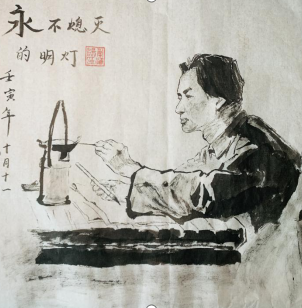 永不熄灭
的明灯
壬寅年
十月十一